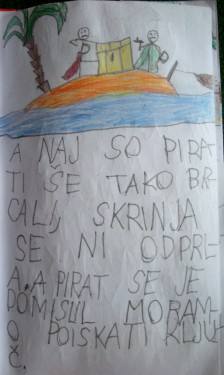 A NAJ SO PIRA
TI ŠE TAKO BR
CALI, SKRINJA
SE NI ODPRL
A. A PIRAT SE JE
DOMISUL MORAM
O POISKATI KLJU
Č.